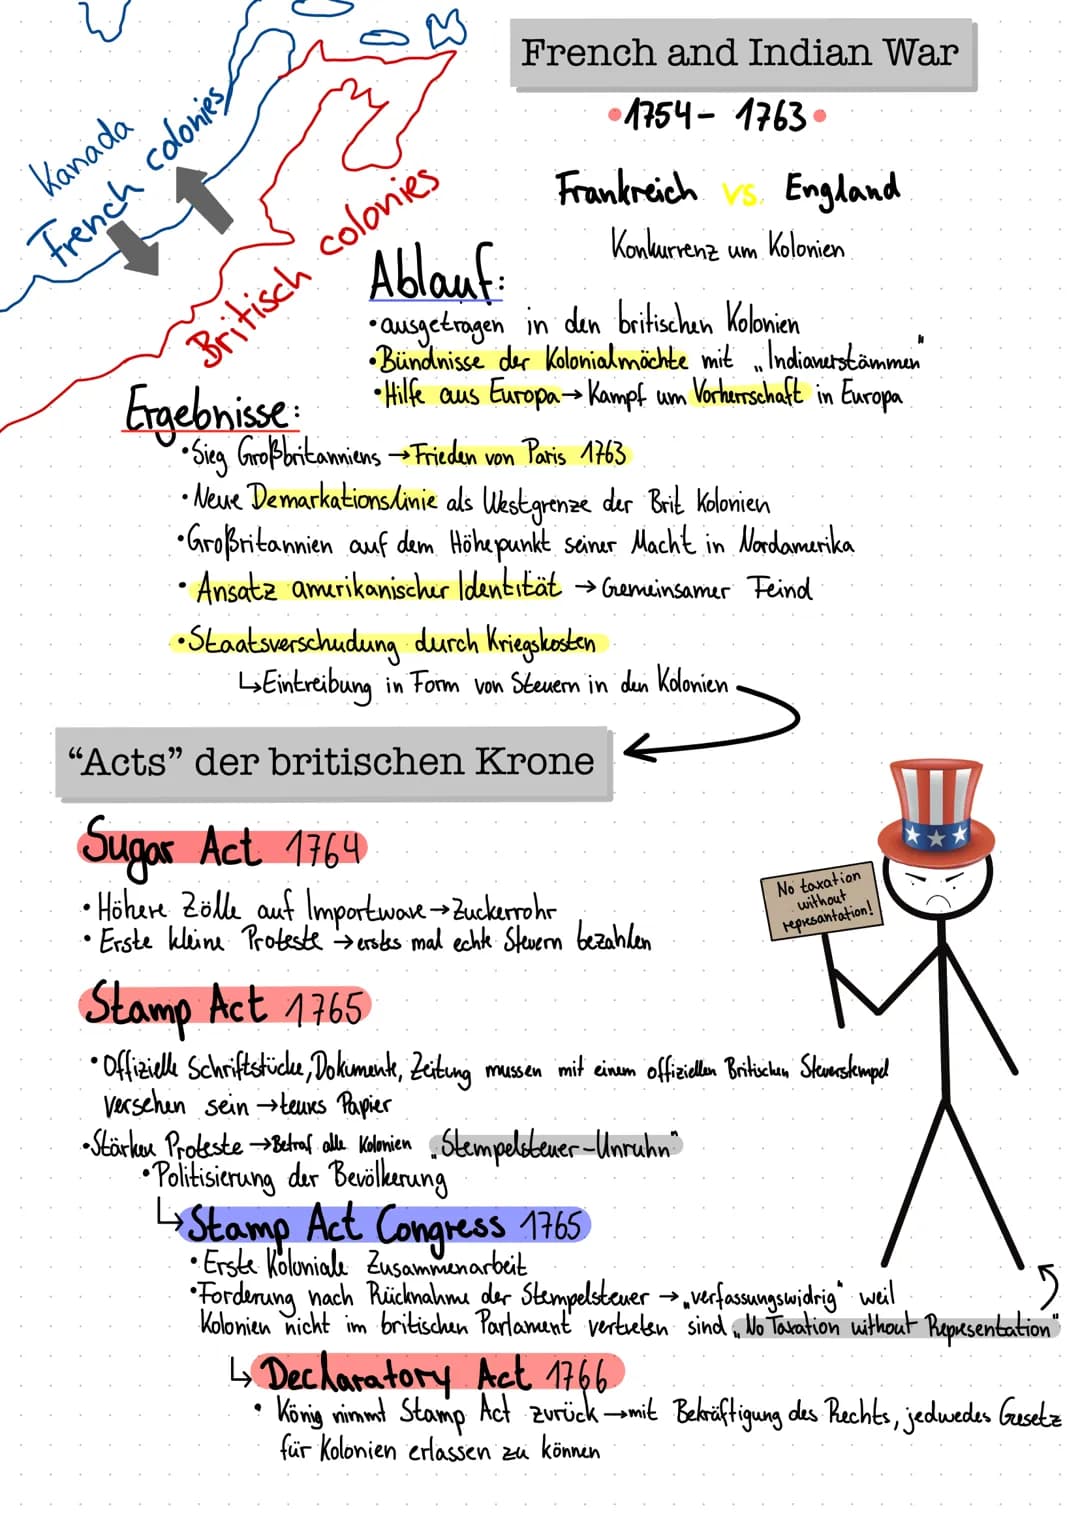 French and Indian War
•1754 - 1763•
Kanada
French colonies
Britisch colonies
Frankreich vs. England
Konkurrenz um Kolonien
Ablauf:
•ausgetragen in den britischen Kolonien
•Bündnisse der Kolonialmächte mit „Indianerstämmen"
•Hilfe aus Europa→Kampf um Vorherrschaft in Europa
Ergebnisse:
•Sieg Großbritanniens →Frieden von Paris 1763
•Neue Demarkationslinie als Westgrenze der Brit Kolonien
•Großritannien auf dem Höhepunkt seiner Macht in Nordamerika
•Ansatz amerikanischer Identität →Gemeinsamer Feind
•Staatsverschudung durch Kriegskosten
↳Eintreibung in Form von Steuern in den Kolonien
“Acts” der britischen Krone
Sugar Act 1764
•Höhere Zölle auf Importware→Zuckerrohr
•Erste kleine Proteste →erstes mal echte Steuern bezahlen
No taxation
without
represantation!
Stamp Act 1765
•Offizielle Schriftstücke, Dokumente, Zeitung mussen mit einem offiziellen Britischen Steuerstempel
versehen sein →teures Papier
•Stärkere Proteste →Betraf alle Kolonien „Stempelsteuer-Unruhn"
•Politisierung der Bevölkerung
↳Stamp Act Congress 1765
•Erste Koloniale Zusammenarbeit
•Forderung nach Rücknahme der Stempelsteuer →„verfassungswidrig" weil
Kolonien nicht im britischen Parlament vertreten sind „No Taxation without Representation"
↳Declaratory Act 1766
•König nimmt Stamp Act zurück →mit Bekräftigung des Rechts, jedwedes Gesetz
für Kolonien erlassen zu können